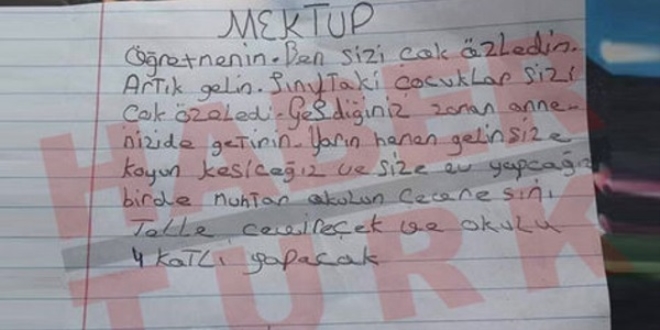 MEKTUP
Öğretmenin. Ben sizi çok özledin.
Artık gelin. Sınıftaki çocuklar sizi
Çok özeledi. Geldiğiniz zaman anne-
nizide getinin. Yarın henen gelin size
koyun kesiceğız ve size ev yapcağız
birde muhtar okulun Çecene sini
Telle çevireçek ve okulu
4 katli yapacak
HABER
TURK